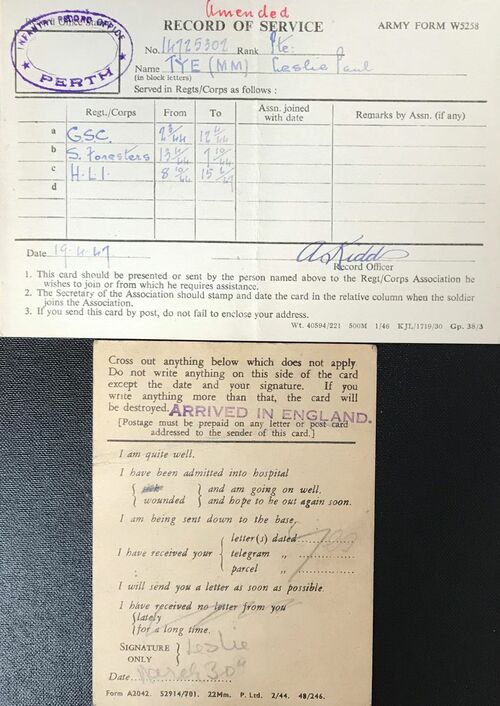 Amended
RECORD OF SERVICE
ARMY FORM W5258
INFANTRY RECORD OFFICE
★ PERTH ★
No. 14725302 Rank Pte.
Name TYE (MM) Leslie Paul
(in block letters)
Served in Regts/Corps as follows :
Regt./Corps From To Assn. joined with date Remarks by Assn. (if any)
a G.S.C. 2/3/44 12/4/44
b S. Foresters 13/4/44 7/10/44
c H.L.I. 8/10/44
d
Date 19-4-47 A Kidd
Record Officer
1. This card should be presented or sent by the person named above to the Regt/Corps Association he
wishes to join or from which he requires assistance.
2. The Secretary of the Association should stamp and date the card in the relative column when the soldier
joins the Association.
3. If you send this card by post, do not fail to enclose your address.
Wt. 40594/221 500M 1/46 KJL/1719/30 Gp. 38/3
Cross out anything below which does not apply.
Do not write anything on this side of the card
except the date and your signature. If you
write anything more than that, the card will
be destroyed.
ARRIVED IN ENGLAND.
[Postage must be prepaid on any letter or post card
addressed to the sender of this card.]
I am quite well.
I have been admitted into hospital
{ sick } and am going on well.
{ wounded } and hope to be out again soon.
I am being sent down to the base.
I have received your { letter(s) dated
telegram ,,
parcel ,,
yes
I will send you a letter as soon as possible.
I have received no letter from you
{ lately
{ for a long time.
SIGNATURE ONLY } Leslie
Date March 30th
Form A2042. 52914/701. 22Mm. P. Ltd. 2/44. 48/246.